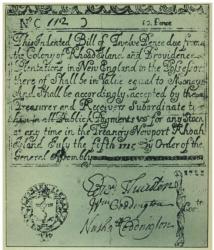 No C 1112
12 Pence
This Indented Bill of Twelve Pence due from
the Colony of Rhoad Island and Providence
Plantations in New England to the Possessor
thereof Shall be in value equal to Money
And Shall be accordingly accepted by the
Treasurer and Receivers Subordinate to
him in all Publick Payments & for any Stock
at any time in the Treasury Newport Rhoad
Island July the fifth 1715 By Order of the
General Assembly